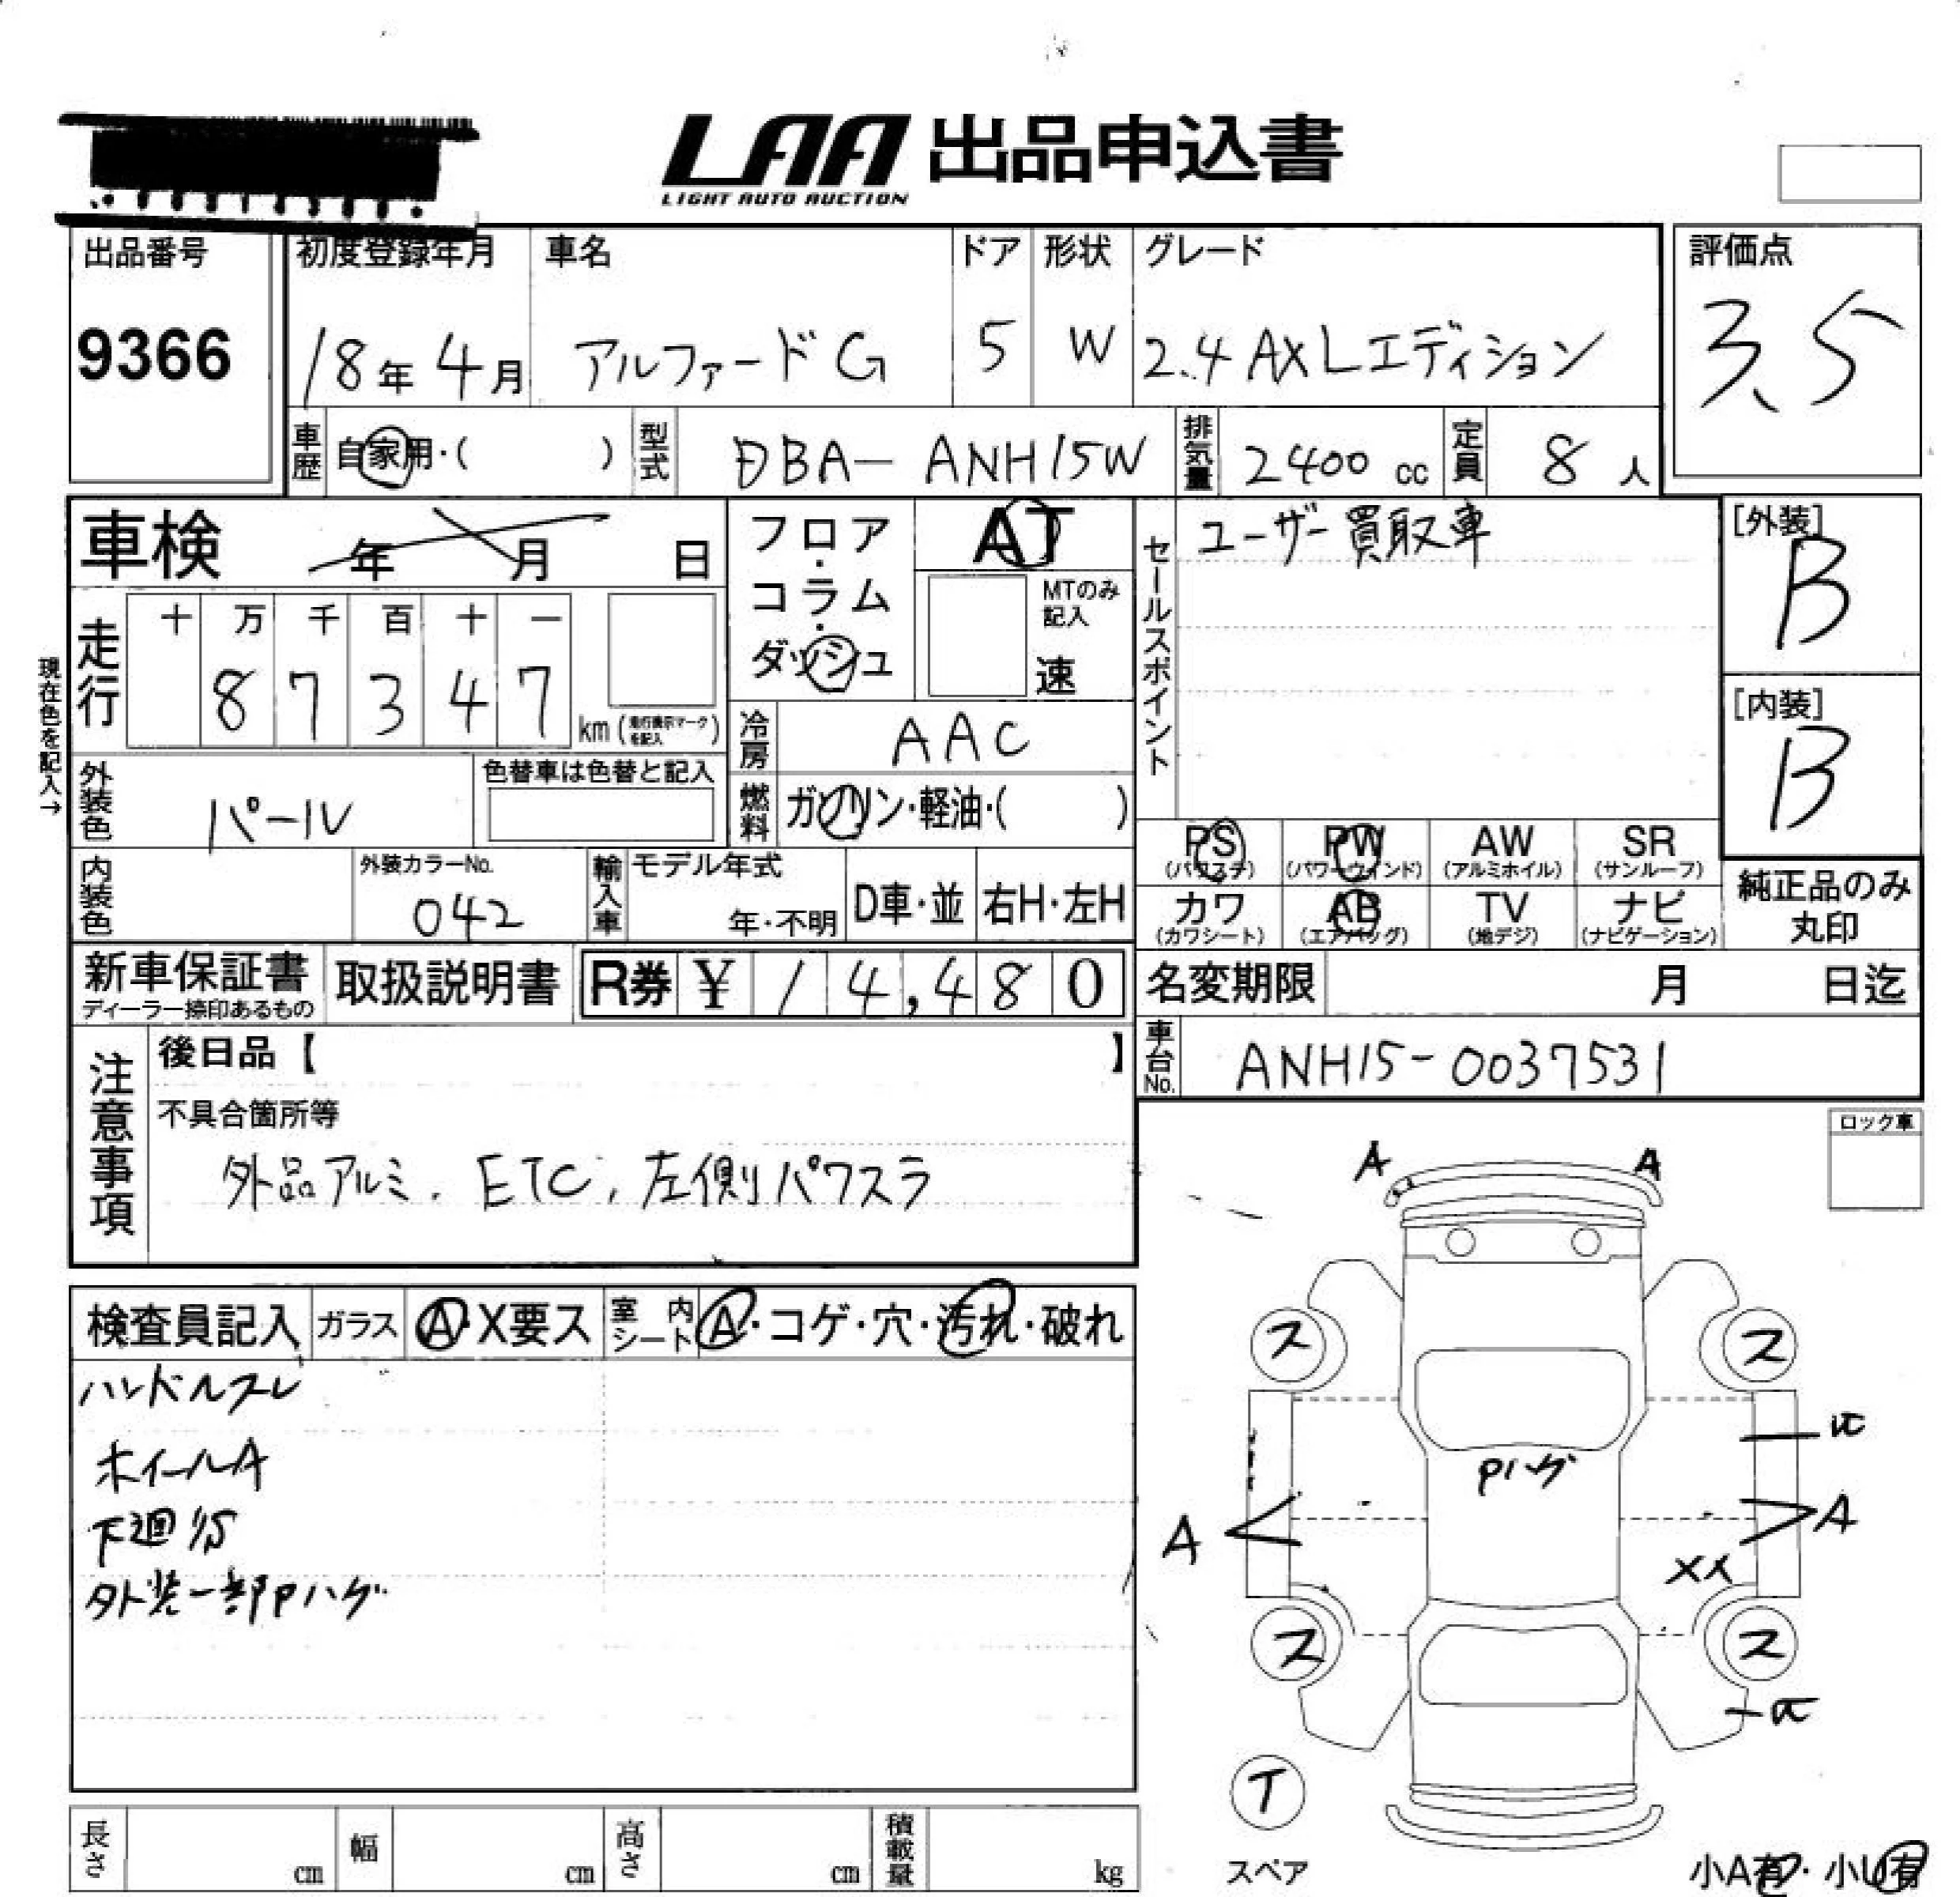 LAA 出品申込書
LIGHT AUTO AUCTION
出品番号
9366
初度登録年月
18年 4月
車名
アルファードG
ドア
5
形状
W
グレード
2.4 AX Lエディション
評価点
3.5
車歴
自家用・( )
型式
DBA-ANH15W
排気量
2400 cc
定員
8 人
車検 年 月 日
現在色を記入→
走行
十 万 千 百 十 一
8 7 3 4 7
km (走行表示マークを記入)
フロア・コラム・ダッシュ
AT
MTのみ記入
速
冷房
AAC
燃料
ガソリン・軽油・( )
外装色
パール
色替車は色替と記入
内装色
外装カラーNo.
042
輸入車
モデル年式
年・不明
D車・並
右H・左H
セールスポイント
ユーザー買取車
[外装]
B
[内装]
B
PS (パワステ) PW (パワーウィンド) AW (アルミホイル) SR (サンルーフ)
カワ (カワシート) AB (エアバッグ) TV (地デジ) ナビ (ナビゲーション)
純正品のみ丸印
新車保証書
ディーラー捺印あるもの
取扱説明書
R券 ¥ 14,480
名変期限 月 日迄
車台No.
ANH15-0037531
注意事項
後日品【 】
不具合箇所等
外品アルミ. ETC, 左側パワスラ
ロック車
検査員記入
ガラス
A・X要ス
室内シート
A・コゲ・穴・汚れ・破れ
ハンドルスレ
ホイールA
下廻りS
外装一部Pハゲ
A A
ス ス
Pハゲ
A A
XX
ス ス
T
スペア
長さ cm
幅 cm
高さ cm
積載量 kg
小A有・小U有